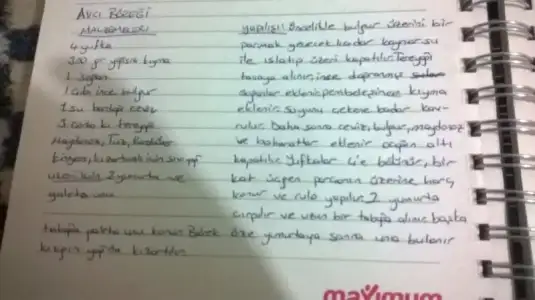 AVCI BÖREĞİ
MALZEMELER
4 yufka
200 gr yağsız kıyma
1 soğan
1 ince bulgur
1 su bardağı ceviz
3 kaşık tereyağı
Maydanoz, Tuz, Karabiber
Kimyon, kızartmak için sıvı yağ
2 yumurta ve
galeta unu
yapılışı: Öncelikle bulgur üzerini bir
parmak geçecek kadar kaynar su
ile ıslatıp üzeri kapatılır. Tereyağı
tavaya alınır, ince doğranmış
soğanlar eklenir pembeleşince kıyma
eklenir. Suyunu çekene kadar kav-
rulur. Daha sonra ceviz, bulgur, maydanoz
ve baharatlar eklenir ocağın altı
kapatılır. Yufkalar bölünür, bir
kat üçgen parçanın üzerine harç
konur ve rulo yapılır. 2 yumurta
çırpılır ve uzun bir tabağa alınır başka
tabağa galeta unu konur. Börek önce yumurtaya sonra una bulanır
kızgın yağda kızartılır.
maximum